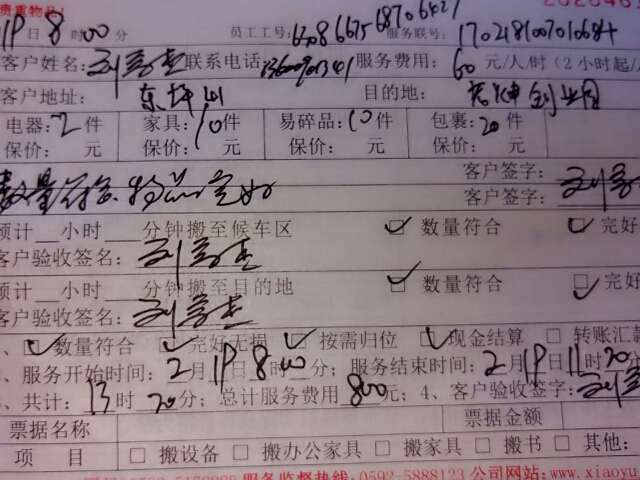 贵重物品:
19日8时00分 员工工号: 服务联号: 17021810070106
客户姓名: 刘 联系电话 服务费用: 60 元/人/时(2小时起/
客户地址: 东坪山 目的地: 创业园
电器: 2件 家具: 10件 易碎品: 10件 包裹: 20件
保价: 元 保价: 元 保价: 元 保价: 元
数量符合.物品完好 客户签字: 刘
客户签字: 刘
预计 小时 分钟搬至候车区 ☑ 数量符合 ☑ 完好
客户验收签名: 刘
预计 小时 分钟搬至目的地 ☑ 数量符合 ☑ 完好
客户验收签名: 刘
、☑数量符合 ☑完好无损 ☑按需归位 ☑现金结算 □ 转账汇款
、服务开始时间: 2月19日8时00分; 服务结束时间: 2月19日11时20分
、共计: 13时20分; 总计服务费用 800元; 4、客户验收签字: 刘
票据名称 票据金额
项 目 □ 搬设备 □ 搬办公家具 □ 搬家具 □ 搬书 □ 其他:
服务监督热线: 0592-5888123 公司网站:www.xiaoyu